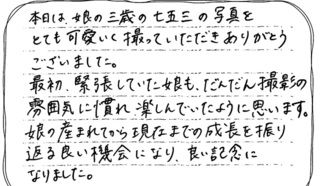 本日は、娘の三歳の七五三の写真を
とても可愛いく撮っていただきありがとう
ございました。
最初、緊張していた娘も、だんだん撮影の
雰囲気に慣れ、楽しんでいたように思います。
娘の産まれてから現在までの成長を振り
返る良い機会になり、良い記念に
なりました。